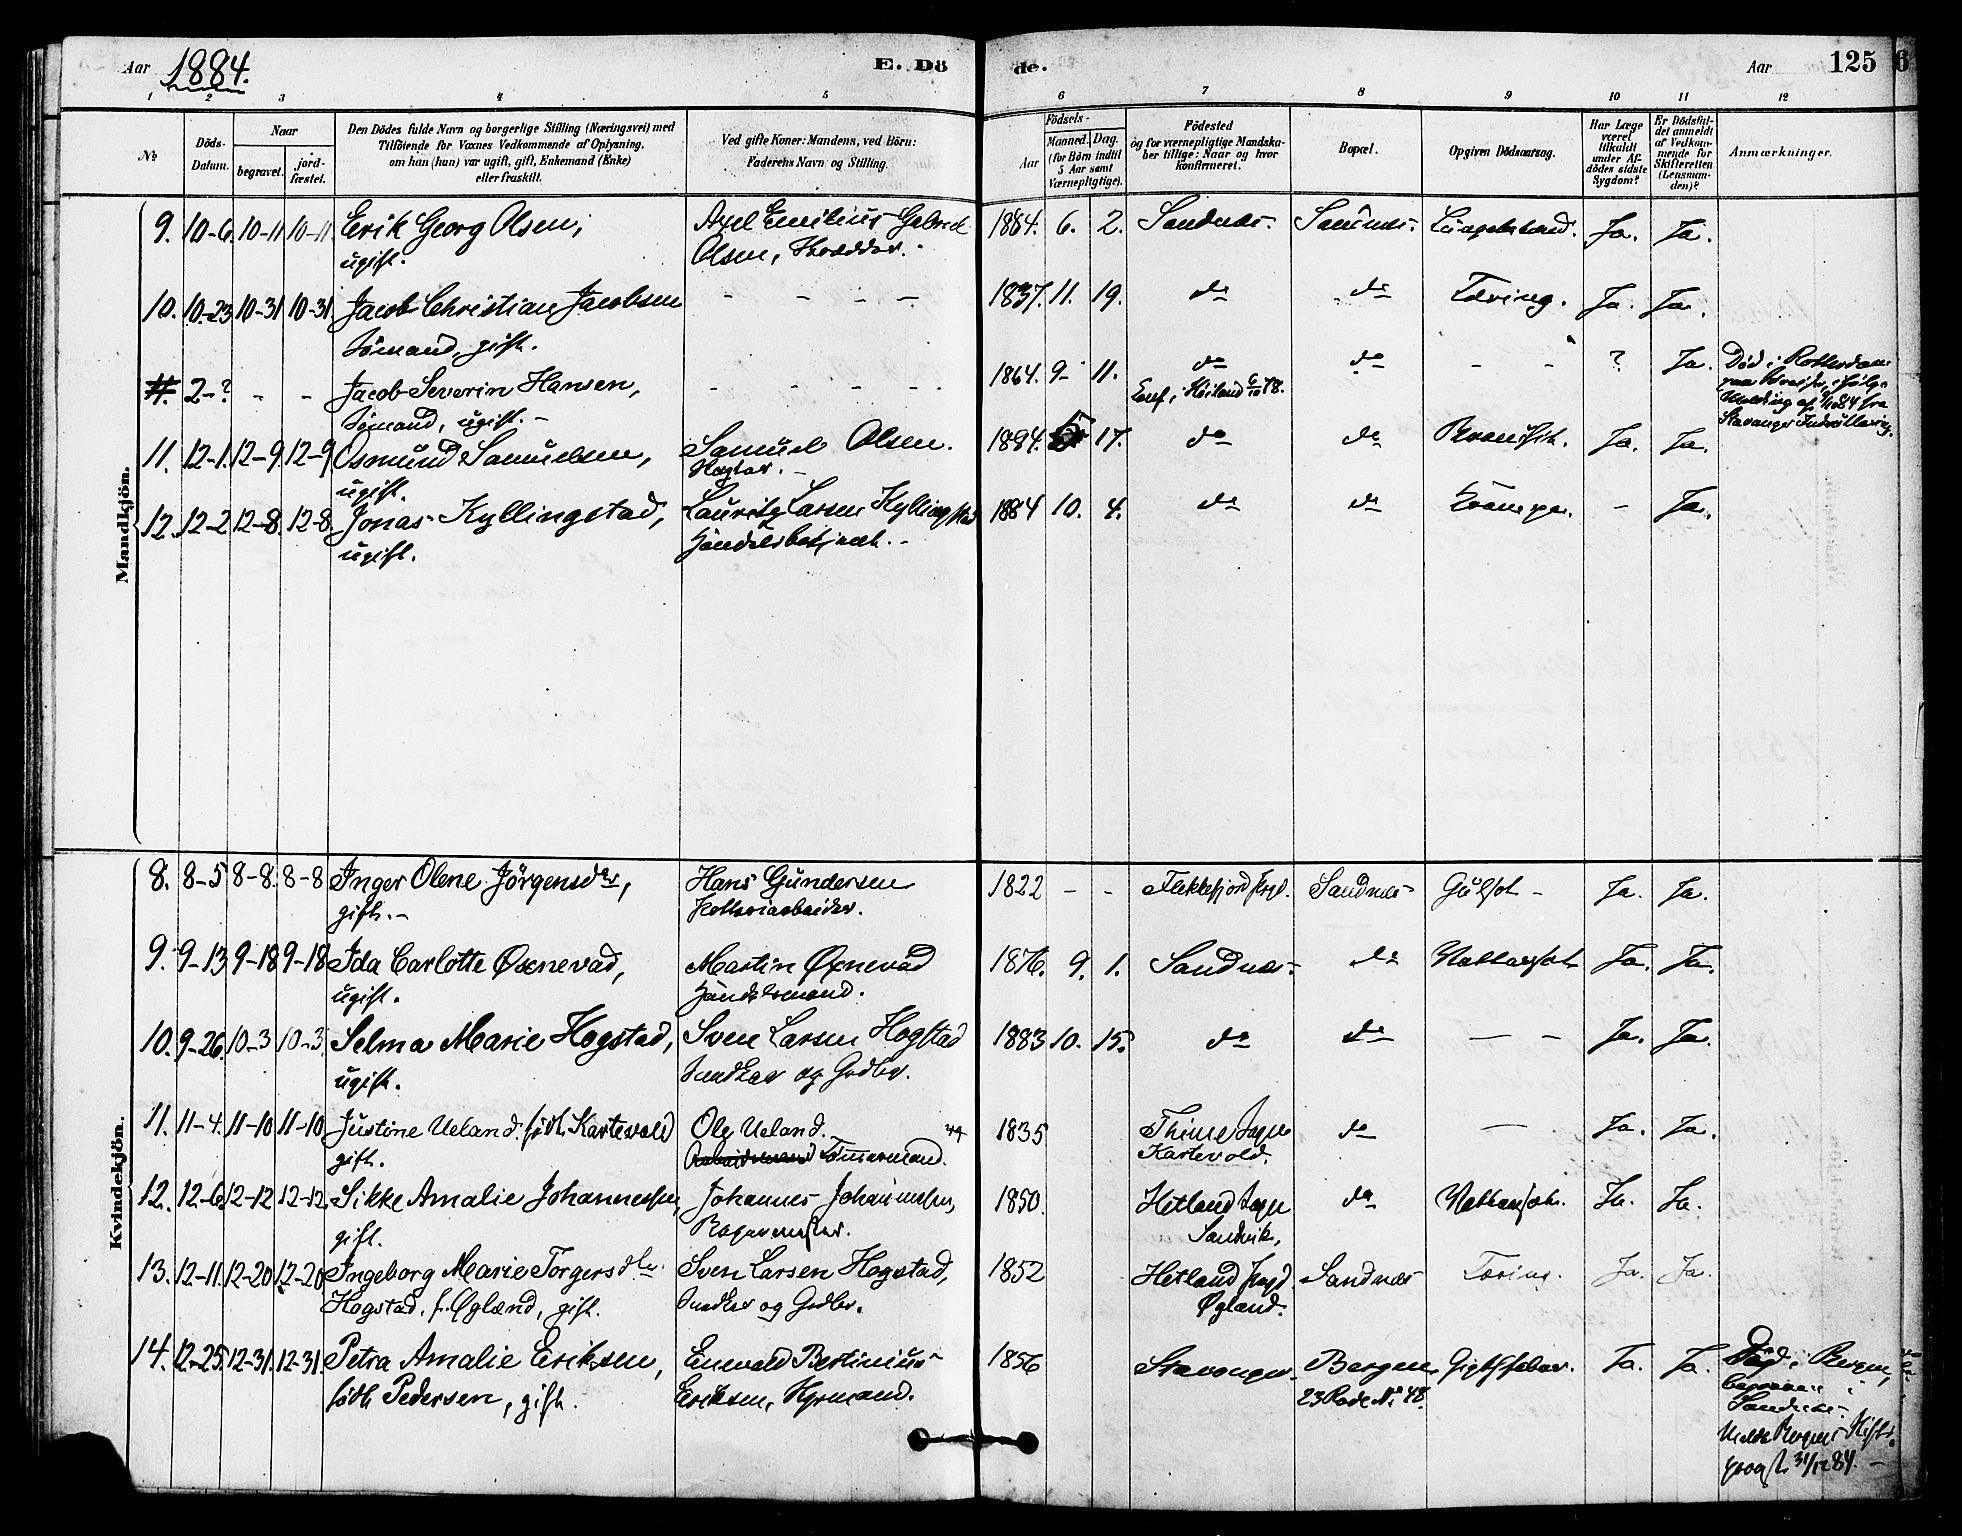 Aar 1884. E. Dö de. Aar 125 6
1 2 3 4 5 6 7 8 9 10 11 12
No
Döds-Datum.
Naar
begravet.
jord-fæstet.
Den Dödes fulde Navn og borgerlige Stilling (Næringsvei) med
Tilföiende for Voxnes Vedkommende af Oplysning,
om han (hun) var ugift, gift, Enkemand (Enke)
eller fraskilt.
Ved gifte Koner: Mandens, ved Börn:
Faderens Navn og Stilling.
Födsels-
Aar
Maaned. Dag.
(for Börn indtil
5 Aar samt
Værnepligtige).
Födested
og for værnepligtige Mandska-
ber tillige: Naar og hvor
konfirmeret.
Bopæl.
Opgiven Dödsaarsag.
Har Læge
været
tilkaldt
under Af-
dödes sidste
Sygdom?
Er Dödsfal-
det anmeldt
af Vedkom-
mende for
Skifteretten
(Lensman-
den)?
Anmærkninger.
Mandkjön.
9. 10-6. 10-11 10-11 Erik Georg Olsen, Axel Emilius Gabriel 1884. 6. 2. Sandnæs. Sandnæs. Ja. Ja.
ugift. Olsen, Skrædder.
10. 10-23 10-31 10-31 Jacob Christian Jacobsen - - - - 1837. 11. 19. do do Tæring. Ja. Ja.
Sömand, gift.
#. 2-? - - Jacob Severin Hansen, - - - - 1864. 9- 11. do do - - ? Ja. Død i Rotterdam
Sömand, ugift. - Conf. i Höiland 6/10 78.
Stavanger Indrullering.
11. 12-1. 12-9. 12-9 Osmund Samuelsen, Samuel Olsen. 1884. 5 17. do do Ja. Ja.
ugift.
12. 12-2 12-8. 12-8. Jonas Kyllingstad, Lauritz Larsen Kyllingstad 1884 10. 4. do do Krampe. - Ja.
ugift. Handelsbetjent. -
Kvindekjön.
8. 8-5 8-8. 8-8 Inger Olene Jörgensdtr, Hans Gundersen 1822 - - Flekkefjord Sandnæs Gulsot - Ja. Ja.
gift. - Potteriarbeider.
9. 9-13 9-18 9-18 Ida Carlotte Øxnevad, Martin Øxnevad 1876. 9. 1. Sandnæs. do Vattersot Ja. Ja.
ugift. Handelsmand.
10. 9-26. 10-3 10-3. Selma Marie Hogstad, Sven Larsen Hogstad 1883 10. 15. do do - - Ja. Ja.
ugift. Snedker og Grdbr.
11. 11-4. 11-10 11-10 Justine Ueland. födt Kartevold Ole Ueland. 1835 Thime Sogn do - Ja. Ja.
gift. Arbeidsmand Tömmermand. Kartevold.
12. 12-6. 12-12 12-12. Sikke Amalie Johannessen, Johannes Johannessen, 1850. Hetland Sogn do Vattersot. Ja. Ja.
gift. Sandvik,
13. 12-11. 12-20 12-20 Ingeborg Marie Torgersdtr Sven Larsen Hogstad, 1852 Hetland Sandnæs Tæring. Ja. Ja.
Hogstad, f. Øglænd, gift. Snedker og Grdbr. Øgland.
14. 12-25. 12-31. 12-31. Petra Amalie Eriksen, Enevald Bertinius 1856 Stavanger. Bergen Gigtfeber. Ja. Ja. Död i Bergen,
födt Pedersen, gift. Eriksen, Styrmand. 23 Rode No 48. begraven i
Sandnæs.
31/12 84. -